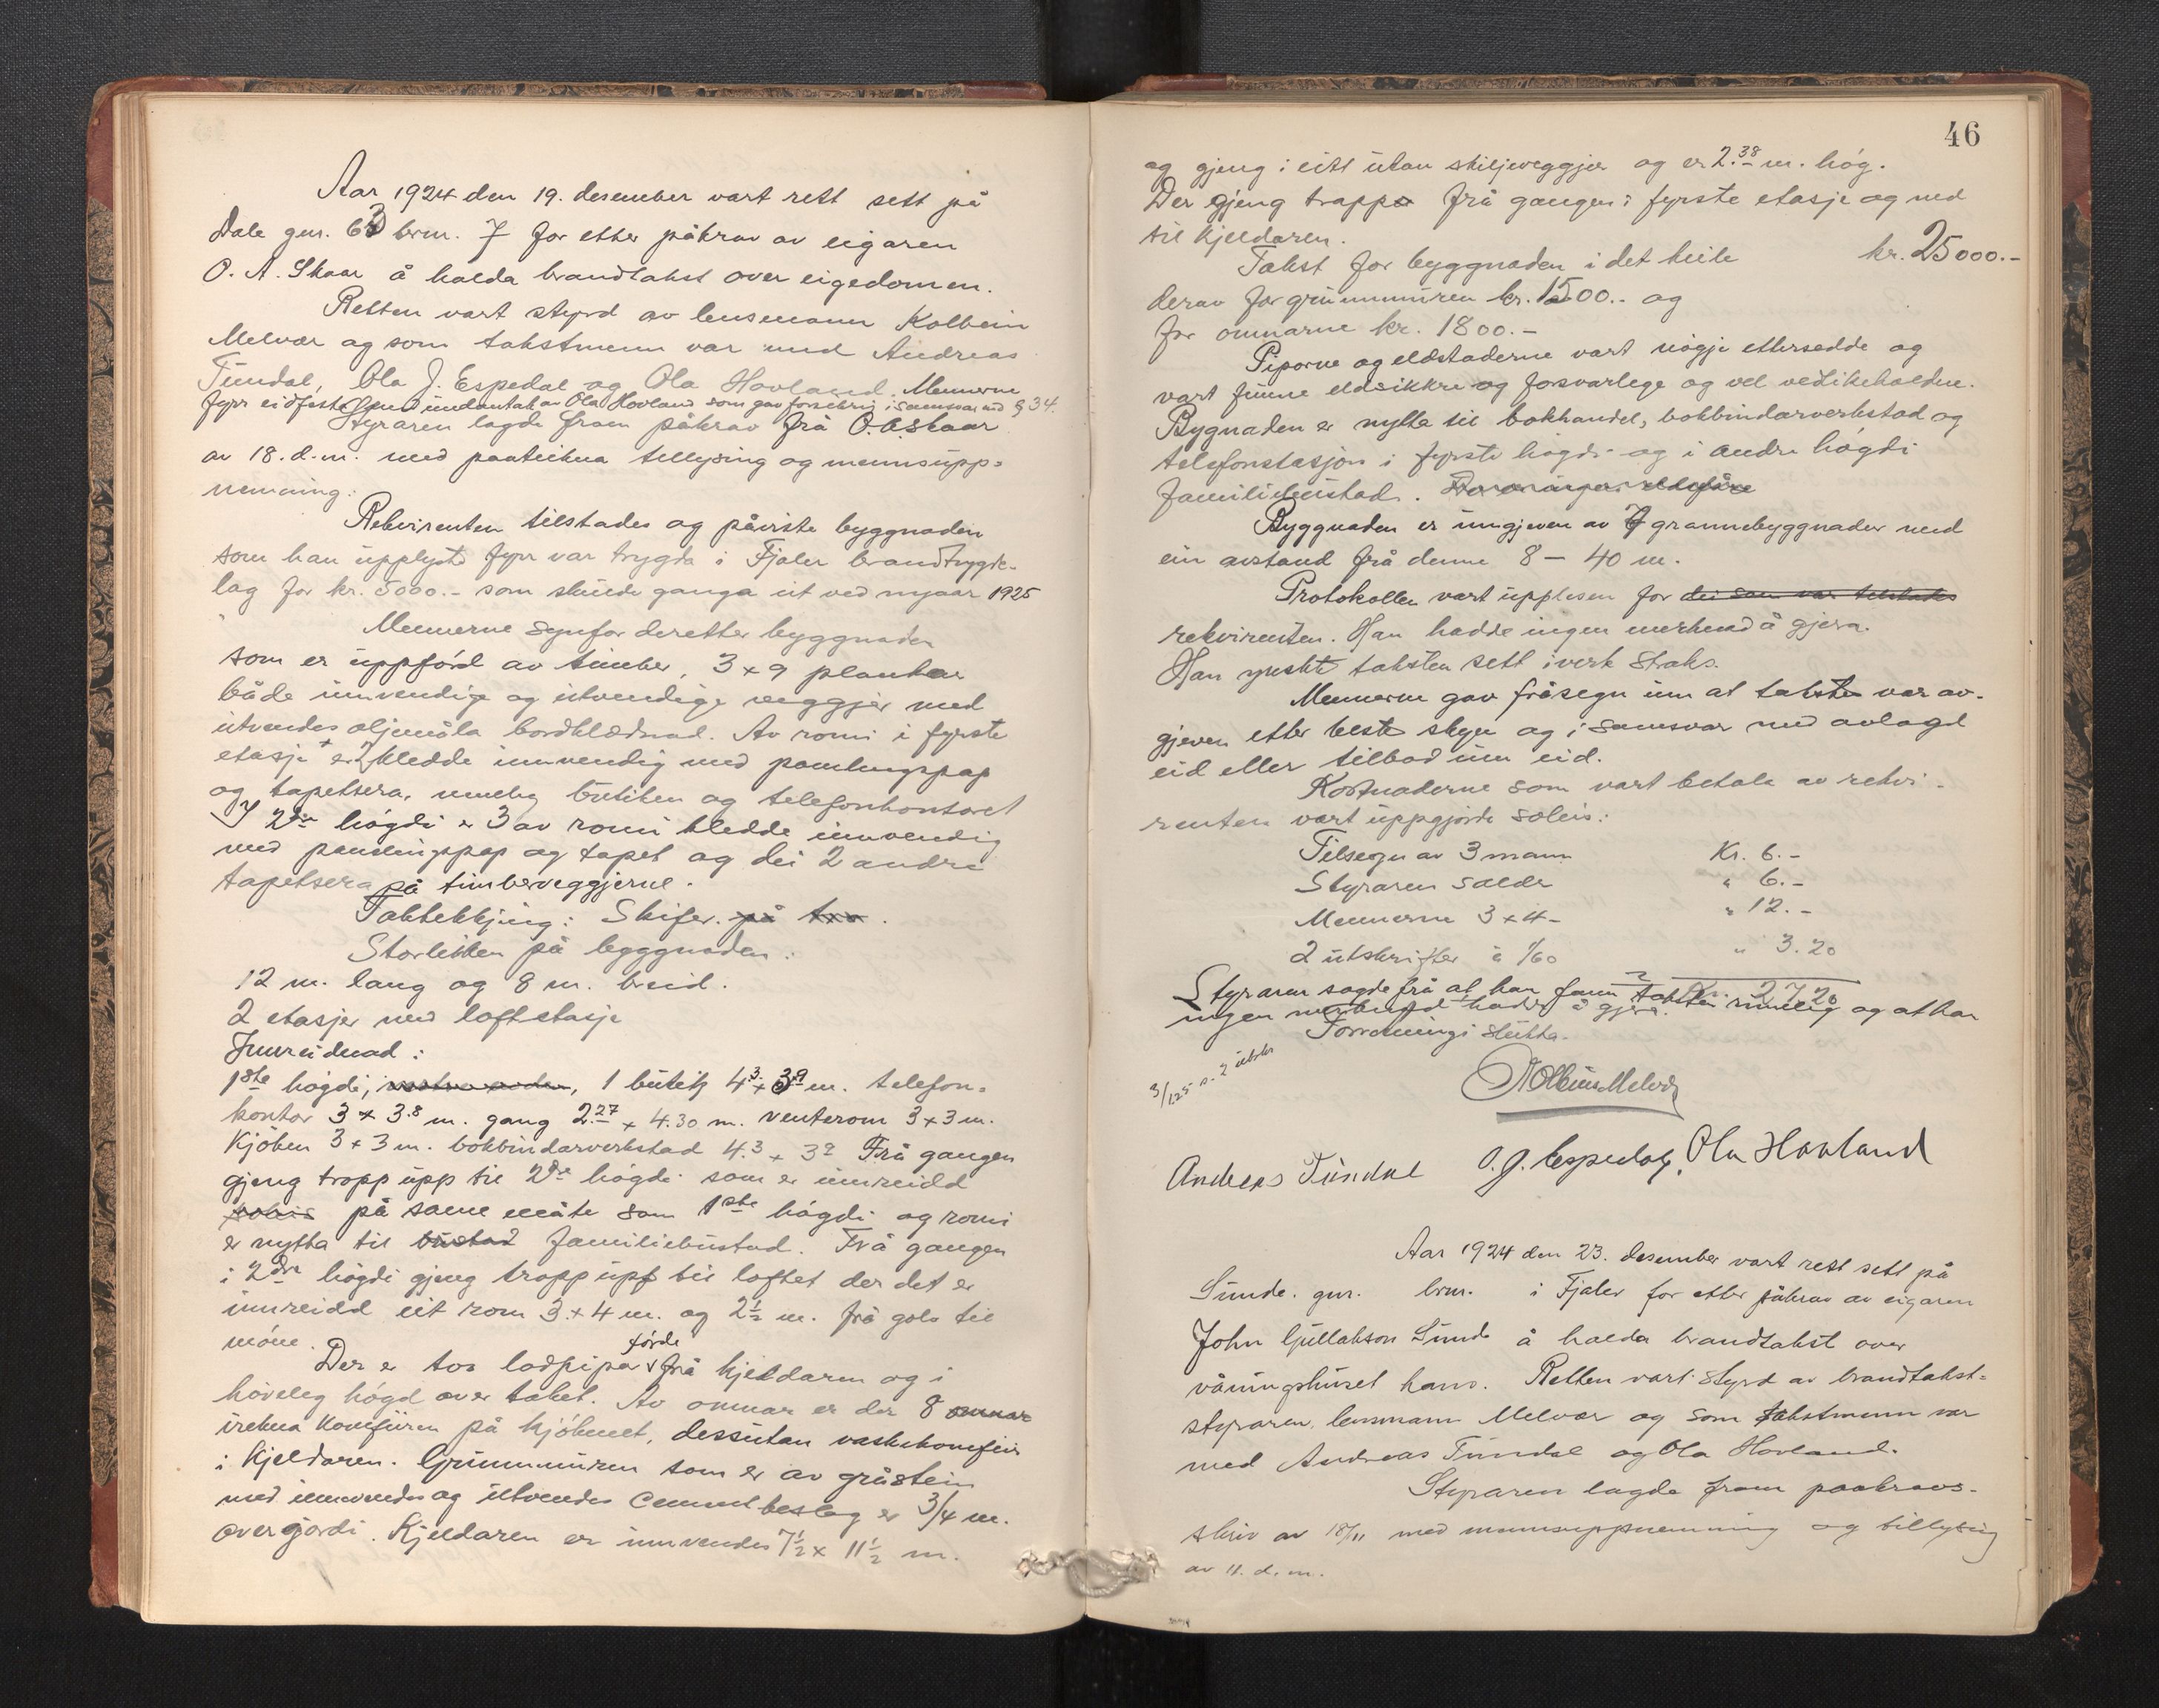 Aar 1924 den 19. desember vart rett sett på
Dale gnr. 63 brn. 7 for etter påkrav av eigaren
O. A. Skaar å halda brandtakst over eigedomen.
Retten vart styrd av lensmann Kolbein
Melvær og som takstmenn var med Andreas
Tündal, Ola J. Espedal og Ola Hovland. Mennerne
fyrr eidfeste med undantak av Ola Hovland som gav forsikring i samsvar med § 34.
Styraren lagde fram påkrav frå O. A. Skaar
av 18. d.m. med paateikna tillysing og mennsupp-
nemning.
Rekvirenten tilstades og påviste byggnaden
som han upplyste fyrr var trygda i Fjaler brandtrygde-
lag for kr. 5000.- som skulde ganga ut ved nyaar 1925
Mennerne synfor deretter byggnaden
som er uppförd av timber, 3 x 9 plankar
både innvendige og utvendige veggjer med
utvendes oljemåla bordklædnad. Av romi i fyrste
etasje er 2 kledde innvendig med panelingspap
og tapetsera, nemleg butiken og telefonkontoret
I 2dre högdi er 3 av romi kledde innvendig
med panelingspap og tapet og dei 2 andre
tapetsera på timberveggjerne.
Taktekkjing: Skifer. på tro.
Storleiken på byggnaden:
12 m. lang og 8 m. breid.
2 etasjer med loftetasje
Innreidnad:
1ste högdi, 1 butik 4.3 x 3.9 m. telefon-
kontor 3 x 3.8 m. gang 2.27 x 4.30 m. venterom 3 x 3 m.
Kjöken 3 x 3 m. bokbindarverkstad 4.3 x 3.9 Frå gangen
gjeng tropp upp til 2dre högdi som er innreidd
på same måte som 1ste högdi og romi
er nytta til bustad familiebustad. Frå gangen
i 2dre högdi gjeng tropp upp til loftet der det er
innreidd eit rom 3 x 4 m. og 2½ m. frå golv til
möne.
Der er tvo lodpipor förde frå kjeldaren og i
höveleg högd over taket. Av omnar er der 8 omnar
irekna komfüren på kjökenet, dessutan vaskekomfür
i kjeldaren. Grunnmuren som er av gråstein
med innvendes og utvendes cementbeslag er 3/4 m.
over jordi. Kjeldaren er innvendes 7½ x 11½ m.
46
og gjeng i eitt utan skiljeveggjer og er 2.38 m. hög.
Der gjeng trapp frå gangen i fyrste etasje og ned
til kjeldaren.
Takst for byggnaden i det heile kr. 25000.-
derav for grunnmuren kr. 1500.- og
for omnarne kr. 1800.-
Piporne og eldstaderne vart nögje ettersedde og
vart funne eldsikkre og forsvarlege og vel vedlikeholdne.
Bygnaden er nytta til bokhandel, bokbindarverkstad og
telefonstasjon i fyrste högdi og i andre högdi
familiebustad.
Byggnaden er umgjeven av 7 grannebyggnader med
ein avstand frå denne 8 - 40 m.
Protokollen vart upplesen for dei som var tilstades
rekvirenten. Han hadde ingen merknad å gjera.
Han ynskte taksten sett iverk straks.
Mennerne gav fråsegn um at taksten var av-
gjeven etter beste skyn og i samsvar med avlagd
eid eller tilbod um eid.
Kostnaderne som vart betala av rekvi-
renten vart uppgjorde soleis:
Tilsegn av 3 mann Kr. 6.-
Styraren salde " 6.-
Mennerne 3 x 4- " 12.-
2 utskrifter à 1/60 " 3.20
Kr. 27.20
Styraren sagde frå at han fann taksten rimeleg og at han
ingen merknad hadde å gjera.
Forretningi slutta.
3/1 25 s. 2 utskr
Kolbein Melvær
Andreas Tündal O. J. Espedal, Ola Hovland
Aar 1924 den 23. desember vart rett sett på
Sunde. gnr. brn. i Fjaler for etter påkrav av eigaren
John Gullakson Sunde å halda brandtakst over
våningshuset hans. Retten vart styrd av brandtakst-
styraren, lensmann Melvær og som takstmenn var
med Andreas Tündal og Ola Hovland.
Styraren lagde fram paakravs-
skriv av 18/11 med mennsuppnemning og tillysing
av 11. d.m.